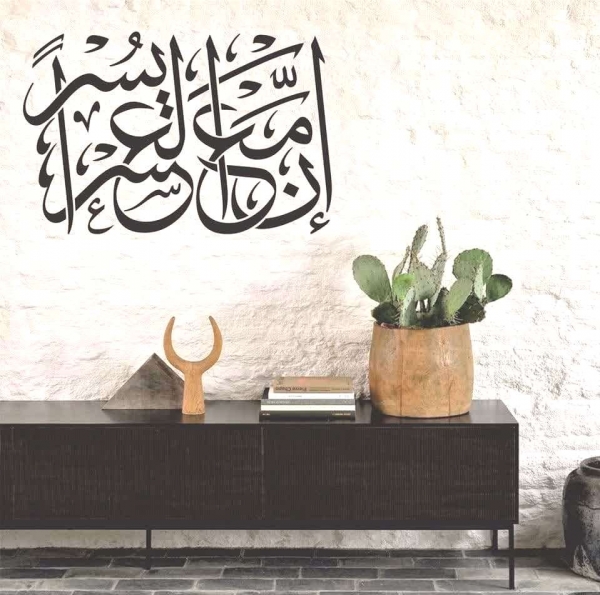 إنَّ مَعَ العسر يُسراً